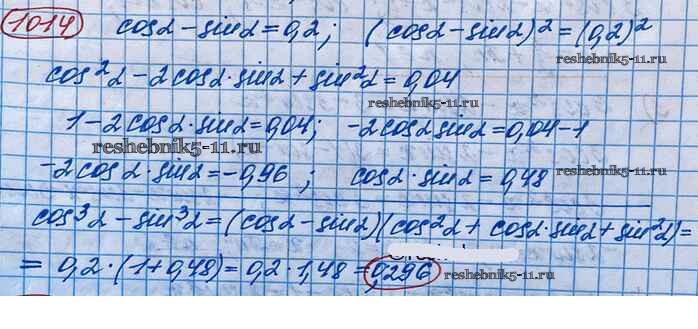 1014 cosα - sinα = 0,2; (cosα - sinα)² = (0,2)²
reshebnik5-11.ru
cos²α - 2cosα·sinα + sin²α = 0,04
reshebnik5-11.ru
1 - 2cosα·sinα = 0,04; -2cosα sinα = 0,04 - 1
reshebnik5-11.ru
-2cosα·sinα = -0,96; cosα·sinα = 0,48
reshebnik5-11.ru
cos³α - sin³α = (cosα - sinα)(cos²α + cosα·sinα + sin²α) =
= 0,2·(1 + 0,48) = 0,2·1,48 = 0,296 reshebnik5-11.ru